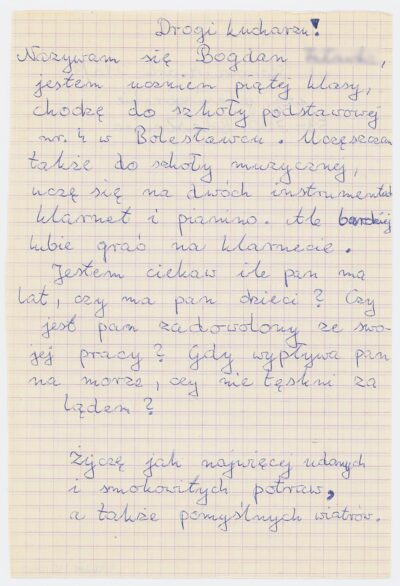 Drogi kucharzu!
Nazywam się Bogdan ,
jestem uczniem piątej klasy,
chodzę do szkoły podstawowej
nr. 4 w Bolesławcu. Uczęszczam
także do szkoły muzycznej,
uczę się na dwóch instrumentach
klarnet i pianino. Ale bardziej
lubie grać na klarnecie.
Jestem ciekaw ile pan ma
lat, czy ma pan dzieci? Czy
jest pan zadowolony ze swo-
jej pracy? Gdy wypływa pan
na morze, czy nie tęskni za
lądem?
Życzę jak najwięcej udanych
i smakowitych potraw,
a także pomyślnych wiatrów.